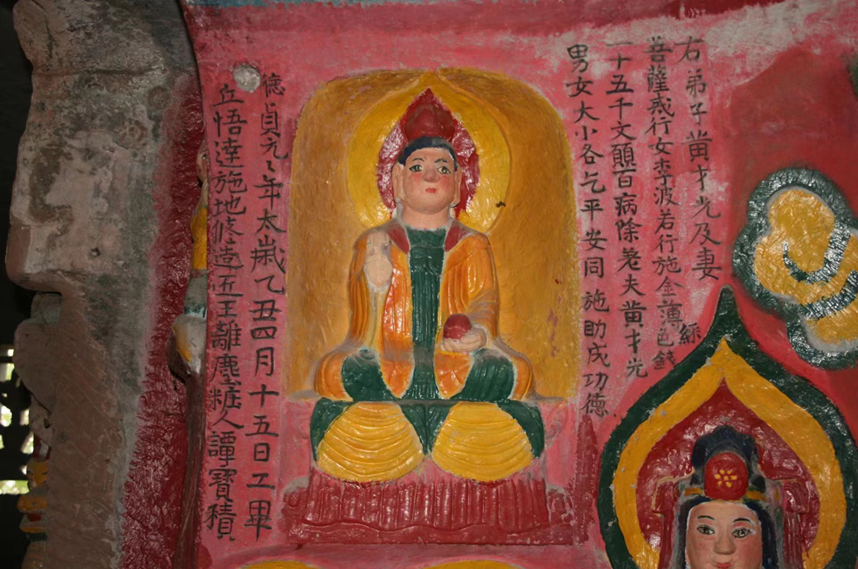 右弟子黄才光及妻
菩薩戒行女李波若行施金薄色錢
一十五千文願百病除差夫黄才光
男女大小各乞平安同施助成功德
德貞元々年太歲乙丑四月十五日工畢
丘悟達施地修造五王離塵 人譚寳積